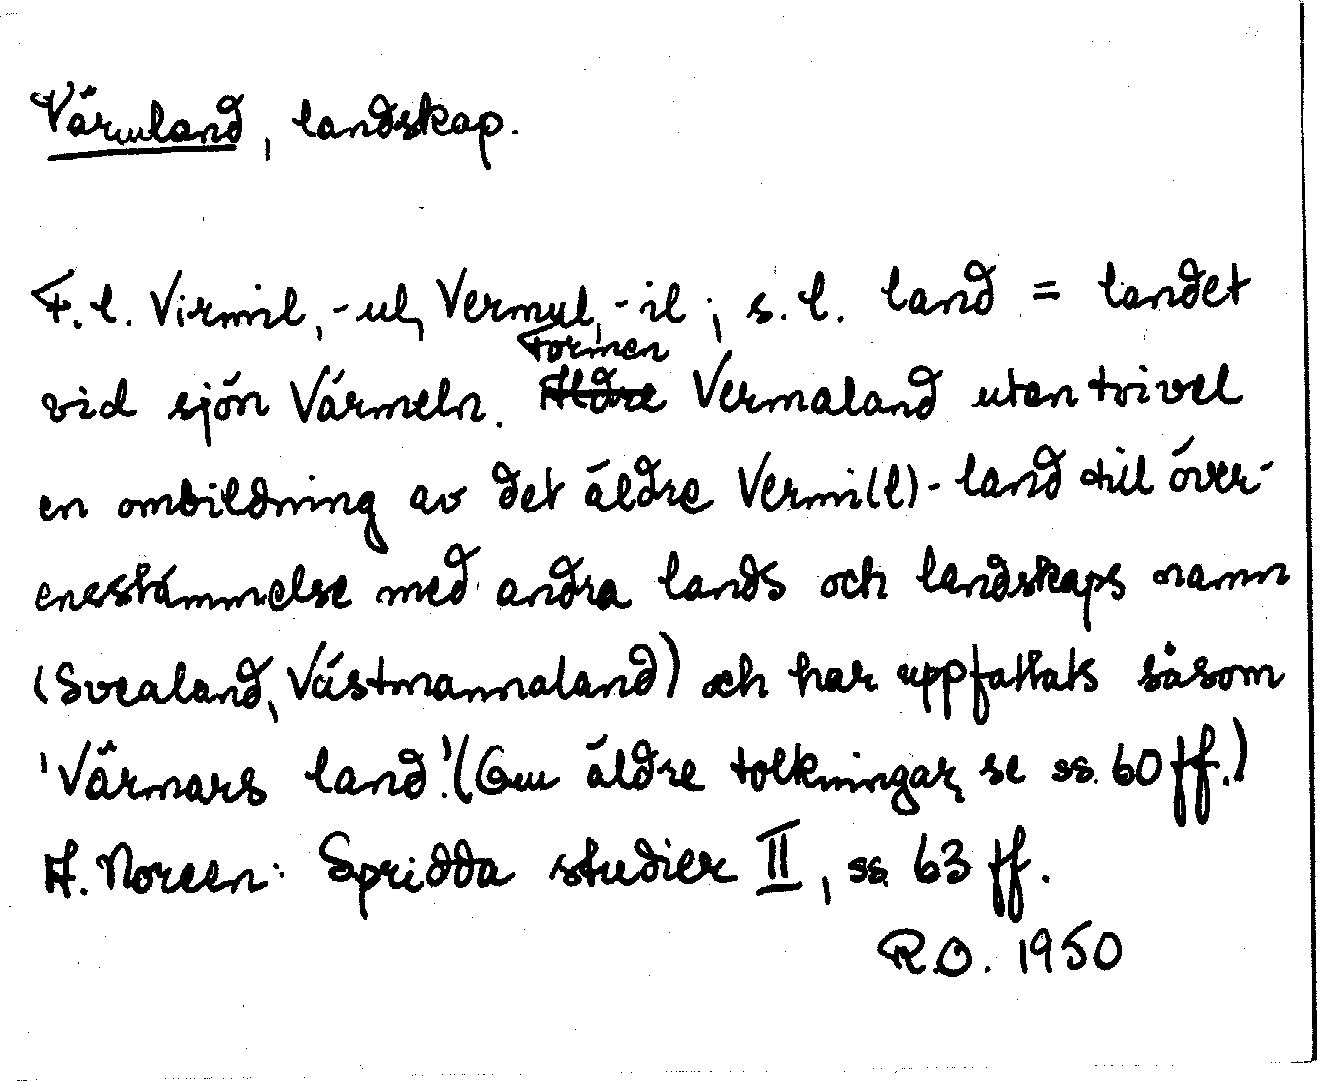 Värmland, landskap.
F. l. Virmil, -ul, Vermul, -il ; s. l. land = landet
vid sjön Värmeln. Formen Vermaland utan tvivel
en ombildning av det äldre Vermi(l)-land till över-
ensstämmelse med andra lands och landskaps namn
(Svealand, Västmannaland) och har uppfattats såsom
'Värmars land'. (Om äldre tolkningar, se ss. 60 ff.)
A. Noreen: Spridda studier II, ss. 63 ff.
R.O. 1950